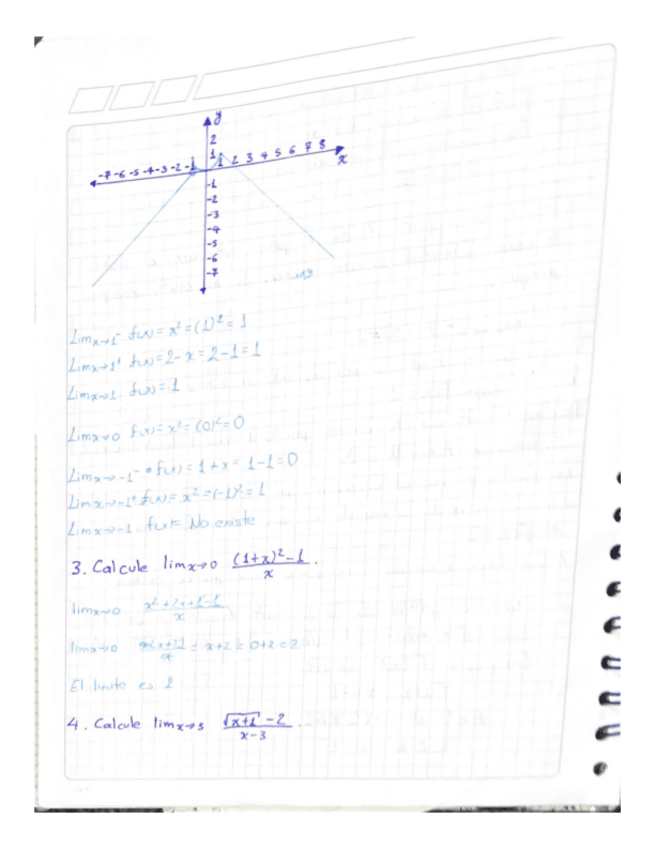 y
2
1
-7 -6 -5 -4 -3 -2 -1 1 2 3 4 5 6 7 8
x
-1
-2
-3
-4
-5
-6
-7
Lim x→1⁻ f(x) = x² = (1)² = 1
Lim x→1⁺ f(x) = 2 - x = 2 - 1 = 1
Lim x→1 f(x) = 1
Lim x→0 f(x) = x² = (0)² = 0
Lim x→-1⁻ f(x) = 1 + x = 1 - 1 = 0
Lim x→-1⁺ f(x) = x² = (-1)² = 1
Lim x→-1 f(x) = No existe
3. Calcule lim x→0 (1+x)² - 1 / x .
lim x→0 x² + 2x + 1 - 1 / x
lim x→0 x(x+2) / x = x + 2 = 0 + 2 = 2
El limite es 2
4. Calcule lim x→3 √x+1 - 2 / x - 3 .